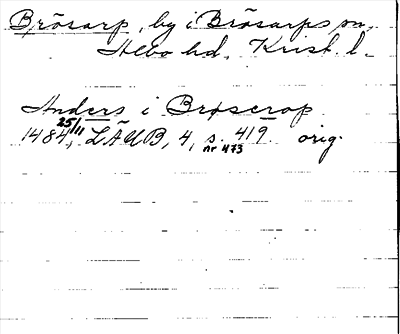 Brösarp, by i Brösarps sn,
Albo hd, Krist. l.
Anders i Brøserop
1484 25/11, LÄUB, 4, s. 419 orig.
nr 473